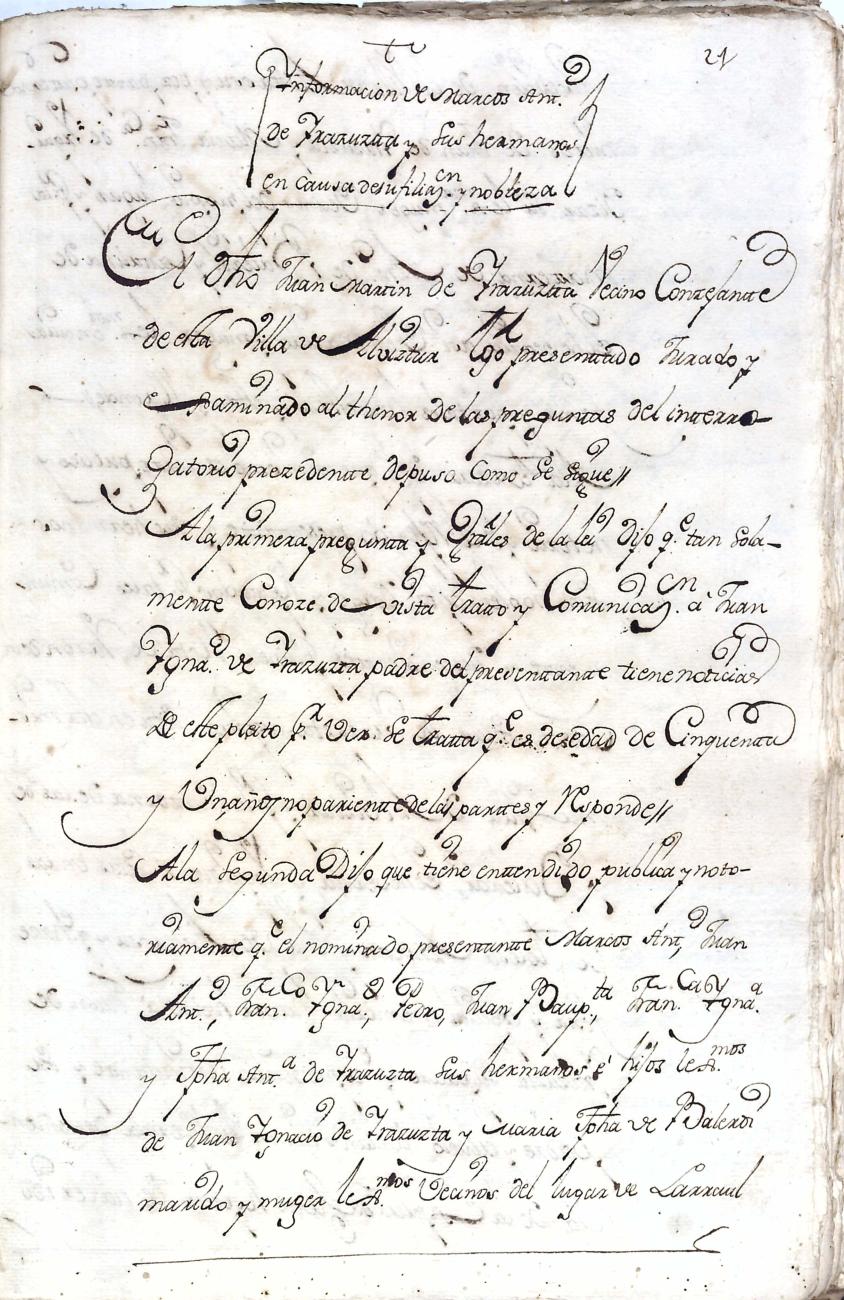 21
Informacion de Marcos Ant.º
de Yrazuzta y sus hermanos
en causa de su filiaz.on y nobleza
El dho Juan Martin de Yrazuzta Vecino Conzejante
de esta Villa de Alviztur tgo presentado Jurado y
examinado al thenor de las preguntas del interro-
gatorio prezedente depuso como se sigue//
A la primera pregunta y Grâles de la lei Dijo q.e tan sola-
mente Conoze de vista tratto y Comunicaz.on a Juan
Ygna.º de Yrazuzta padre del presentante tiene noticias
de este pleito p.r ver se tratta q.e es de edad de Cinquenta
y Un años no pariente de las partes y responde//
A la segunda Dijo que tiene entendido publica y noto-
riamente q.e el nominado presentante Marcos Ant.º, Juan
Ant.º, Fran.co Ygn.º, Pedro, Juan Baup.ta, Fran.ca Ygna.ª
y Jpha Ant.ª de Yrazuzta sus hermanos é hijos lex.mos
de Juan Ygnacio de Yrazuzta y Maria Jpha de Balerdi
marido y muger lex.mos Vecinos del lugar de Larraul